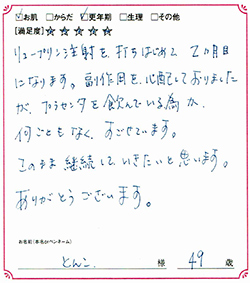 ☑お肌 □からだ ☑更年期 □生理 □その他
[満足度]☆☆☆☆☆
リュープリン注射を、打ちはじめて 2ヵ月目
になります。副作用を、心配しておりました
が、プラセンタを飲んでいる為か、
何ごともなく、すごせています。
このまま継続していきたいと思います。
ありがとうございます。
お名前(本名orペンネーム)
とんこ 様 49 歳